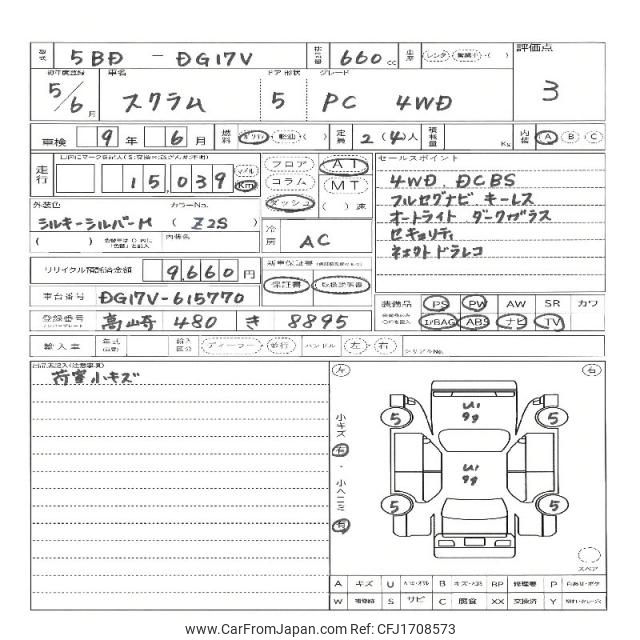 型式 5BD - DG17V 排気量 660 cc 車歴 レンタ 営業中・( ) 評価点
初年度登録 5/6月 車名 スクラム ドア 形状 5 グレード PC 4WD 3
車検 9年 6月 燃料 ガソリン 軽油・( ) 定員 2 (4)人 積載量 Kg 内装 A B C
走行 15,039 マイル Km フロア AT セールスポイント
コラム MT 4WD DCBS
外装色 カラーNo. ダッシュ ( )速 フルセグナビ キーレス
シルキーシルバーM ( Z2S ) 冷房 AC オートライト ダークガラス
( ) 内装色 セキュリティ
新車保証書 ネェクトドラレコ
リサイクル預託済金額 9,660円 保証書 取扱説明書
車台番号 DG17V-615770 装備品 PS PW AW SR カワ
登録番号 高崎 480 き 8895 I/BAG ABS ナビ TV
輸入車 年式 輸入区分 ディーラー 並行 ハンドル 左・右 シリアルNo.
(注意事項) 左 右
荷室小キズ
小キズ 有 ・ 小ヘコミ 有
U1
99
5 5
U1
99
5 5
スペア
A キズ U ヘコミ B キズ・ヘコミ RP 修理要 P
W 補修跡 S サビ C 腐食 XX 交換済 Y
www.CarFromJapan.com Car ID: CFJ1708573